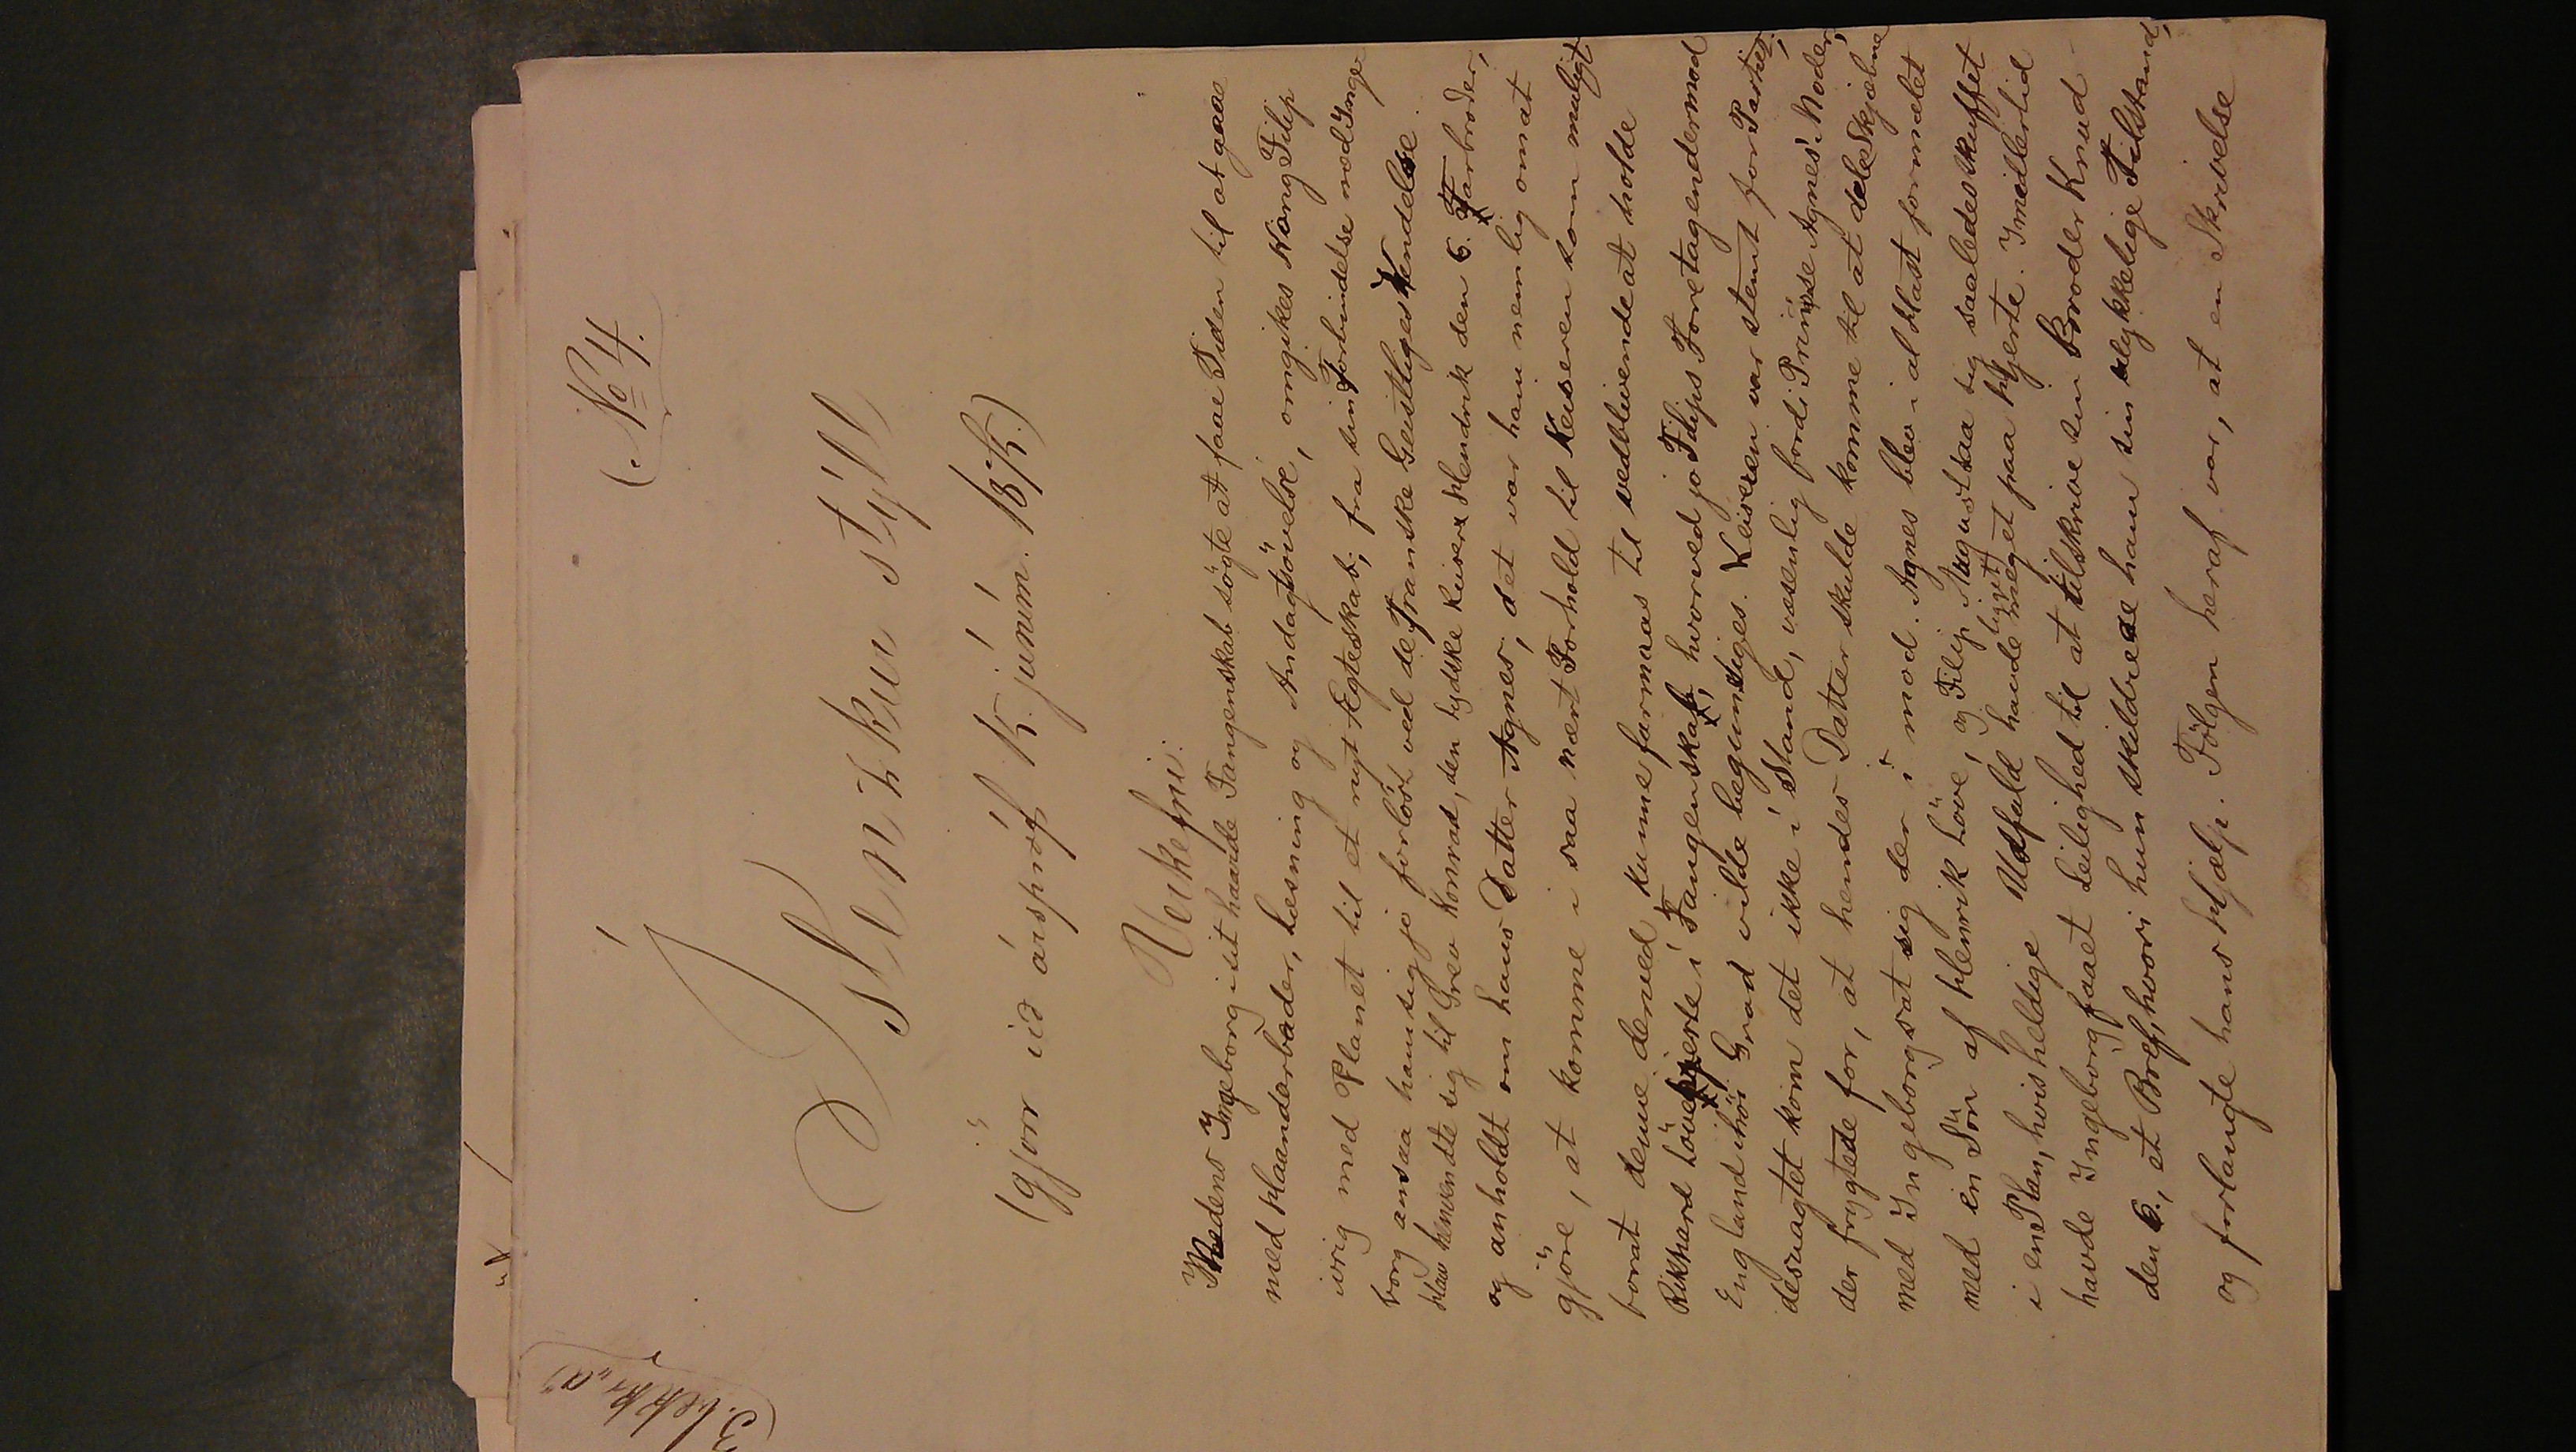 (No 4.
3. bekkr "a"
Islenzkur stýll
(gjörður við árspróf 15. júním. 1858)
Verkefni:
Medens Ingeborg i sit haarde Fangenskab sögte at faae Tiden til at gaae
med Haandarbeider, Læsning og Andagtsövelse, omgikes Kong Filip
ivrig med Planet til et nyt Ægteskab; fra sin Forbindelse med Inge
borg ansaa han sig jo forlöst ved de Franske Geistliges Kendelse.
Han henvendte sig til Grev Konrad, den tydske Keiser Hendrik den 6. Farbroder,
og anholdt om hans Datter Agnes, det var ham nemlig om at
gjöre, at komme i saa nært Forhold til Keiseren som muligt
forat denne derved kunne formaas til vedblivende at holde
Rikhard Lövehjerte i Fangenskab, hvorved jo Filips Foretagender mod
England i höi Grad vilde begunstiges. Keiseren var stemt for Partiet;
desuagtet kom det ikke i Stand, væsenlig fordi Prinsesse Agnes' Moder,
der frygtede for, at hendes Datter skulde komme til at dele Skjæbne
med Ingeborg, sat sig der imod. Agnes blev i al Hast formælet
med en Sön af Henrik Löve, og Filip August saa sig saaledes skuffet
i en Plan, hvis heldige Udfald havde ligget meget paa Hjerte. Imidlertid
havde Ingeborg faaet Leilighed til at tilskrive sin Broder Knud
den 6., et Brev, hvori hun skildrede ham sin ulykkelige Tilstand,
og forlangte hans Hjælp. Fölgen heraf var, at en Skrivelse